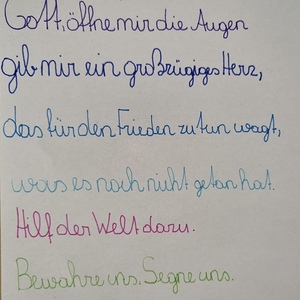 Gott, öffne mir die Augen
gib mir ein großzügiges Herz,
das für den Frieden zu tun wagt,
was es noch nicht getan hat.
Hilf der Welt dazu.
Bewahre uns. Segne uns.